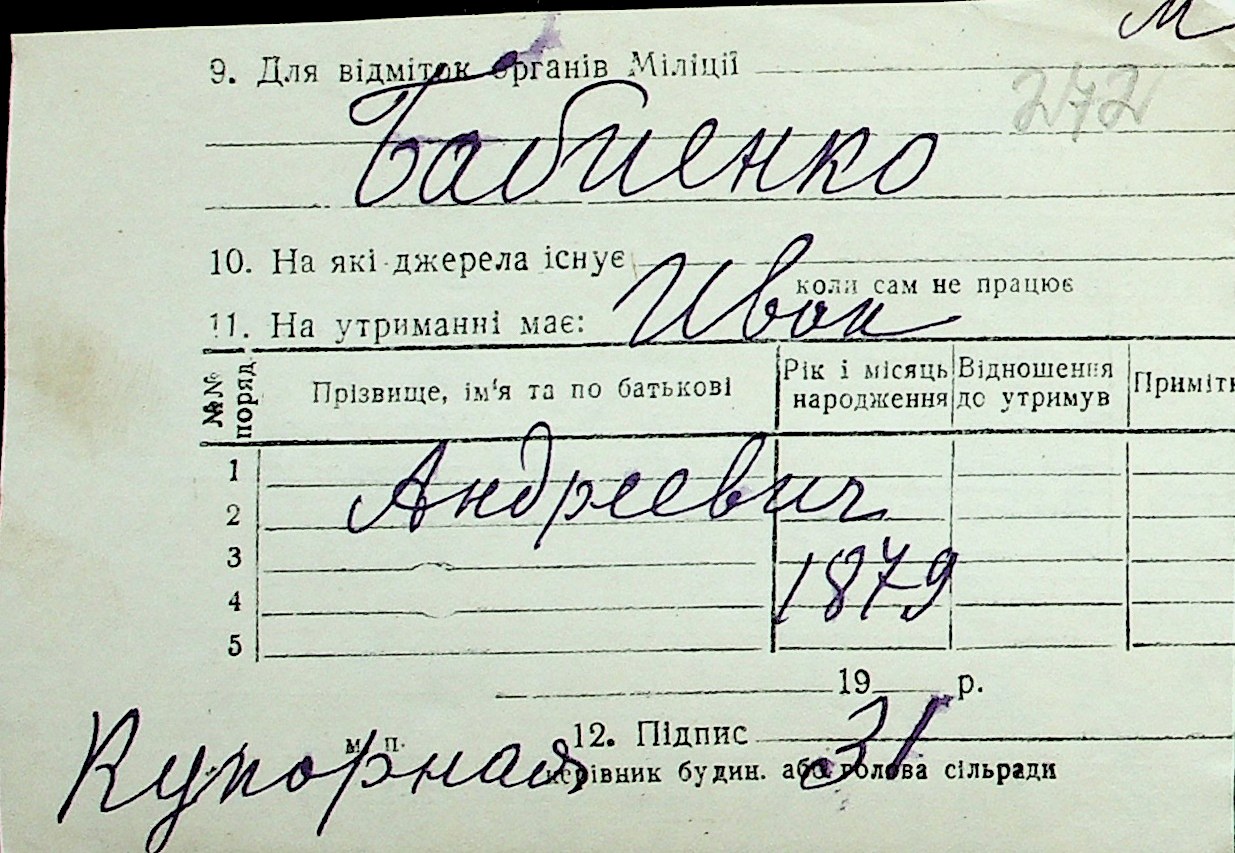 м
9. Для відміток органів Міліції
272
Бабиенко
10. На які джерела існує
коли сам не працює
Иван
11. На утриманні має:
№№ поряд. Прізвище, ім'я та по батькові Рік і місяць народження Відношення до утримув Приміт
1
Андреевич
2
3
1879
4
5
19 р.
12. Підпис
м. п.
Купорная, 31
керівник будин. або голова сільради